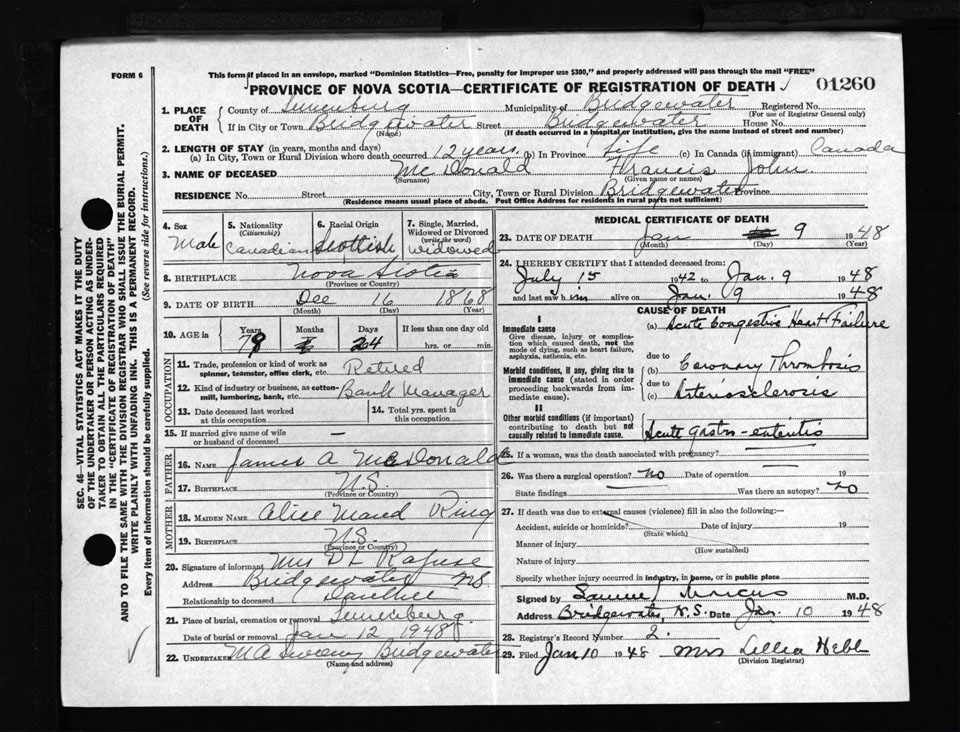 FORM 6
This form if placed in an envelope, marked "Dominion Statistics—Free, penalty for improper use $300," and properly addressed will pass through the mail "FREE"
PROVINCE OF NOVA SCOTIA—CERTIFICATE OF REGISTRATION OF DEATH
01260
1. PLACE OF DEATH
County of Lunenburg Municipality of Bridgewater Registered No.
(For use of Registrar General only)
If in City or Town Bridgewater Street Bridgewater House No.
(Name) (If death occurred in a hospital or institution, give the name instead of street and number)
2. LENGTH OF STAY (in years, months and days)
(a) In City, Town or Rural Division where death occurred 12 years (b) In Province Life (c) In Canada (if immigrant) Canada
3. NAME OF DECEASED McDonald Francis John
(Surname) (Given name or names)
RESIDENCE No. Street City, Town or Rural Division Bridgewater Province
(Residence means usual place of abode. Post Office Address for residents in rural parts not sufficient)
4. Sex Male
5. Nationality (Citizenship) Canadian
6. Racial Origin Scottish
7. Single, Married, Widowed or Divorced (write the word) Widowed
8. BIRTHPLACE Nova Scotia
(Province or Country)
9. DATE OF BIRTH Dec 16 1868
(Month) (Day) (Year)
10. AGE in Years Months Days If less than one day old
79 24 hrs. or min.
OCCUPATION
11. Trade, profession or kind of work as spinner, teamster, office clerk, etc. Retired
12. Kind of industry or business, as cotton-mill, lumbering, bank, etc. Bank Manager
13. Date deceased last worked at this occupation
14. Total yrs. spent in this occupation
15. If married give name of wife or husband of deceased —
FATHER
16. NAME James A McDonald
17. BIRTHPLACE N.S.
(Province or Country)
MOTHER
18. MAIDEN NAME Alice Maud Ring
19. BIRTHPLACE N.S.
(Province or Country)
20. Signature of informant Mrs D L Rafuse
Address Bridgewater N.S.
Relationship to deceased Daughter
21. Place of burial, cremation or removal Lunenburg
Date of burial or removal Jan 12 1948
22. UNDERTAKER M A Sweeny Bridgewater
(Name and address)
MEDICAL CERTIFICATE OF DEATH
23. DATE OF DEATH Jan 9 1948
(Month) (Day) (Year)
24. I HEREBY CERTIFY that I attended deceased from:
July 15 1942 to Jan. 9 1948
and last saw him alive on Jan. 9 1948
CAUSE OF DEATH
I
Immediate cause
Give disease, injury or complication which caused death, not the mode of dying, such as heart failure, asphyxia, asthenia, etc.
(a) Acute Congestive Heart Failure
due to
Morbid conditions, if any, giving rise to immediate cause (stated in order proceeding backwards from immediate cause).
(b) Coronary Thrombosis
due to
(c) Arteriosclerosis
II
Other morbid conditions (if important) contributing to death but not causally related to immediate cause.
Acute gastro-enteritis
25. If a woman, was the death associated with pregnancy? —
26. Was there a surgical operation? no Date of operation — 19
State findings — Was there an autopsy? no
27. If death was due to external causes (violence) fill in also the following:—
Accident, suicide or homicide? Date of injury 19
(State which)
Manner of injury
(How sustained)
Nature of injury
Specify whether injury occurred in industry, in home, or in public place
Signed by Samuel Marcus M.D.
Address Bridgewater, N.S. Date Jan. 10 1948
28. Registrar's Record Number 2.
29. Filed Jan 10 1948 Mrs Lellia Hebb
(Division Registrar)
SEC. 46—VITAL STATISTICS ACT MAKES IT THE DUTY
OF THE UNDERTAKER OR PERSON ACTING AS UNDER-
TAKER TO OBTAIN ALL THE PARTICULARS REQUIRED
IN THE "CERTIFICATE OF REGISTRATION OF DEATH"
AND TO FILE THE SAME WITH THE DIVISION REGISTRAR WHO SHALL ISSUE THE BURIAL PERMIT.
WRITE PLAINLY WITH UNFADING INK. THIS IS A PERMANENT RECORD.
Every item of information should be carefully supplied. (See reverse side for instructions.)